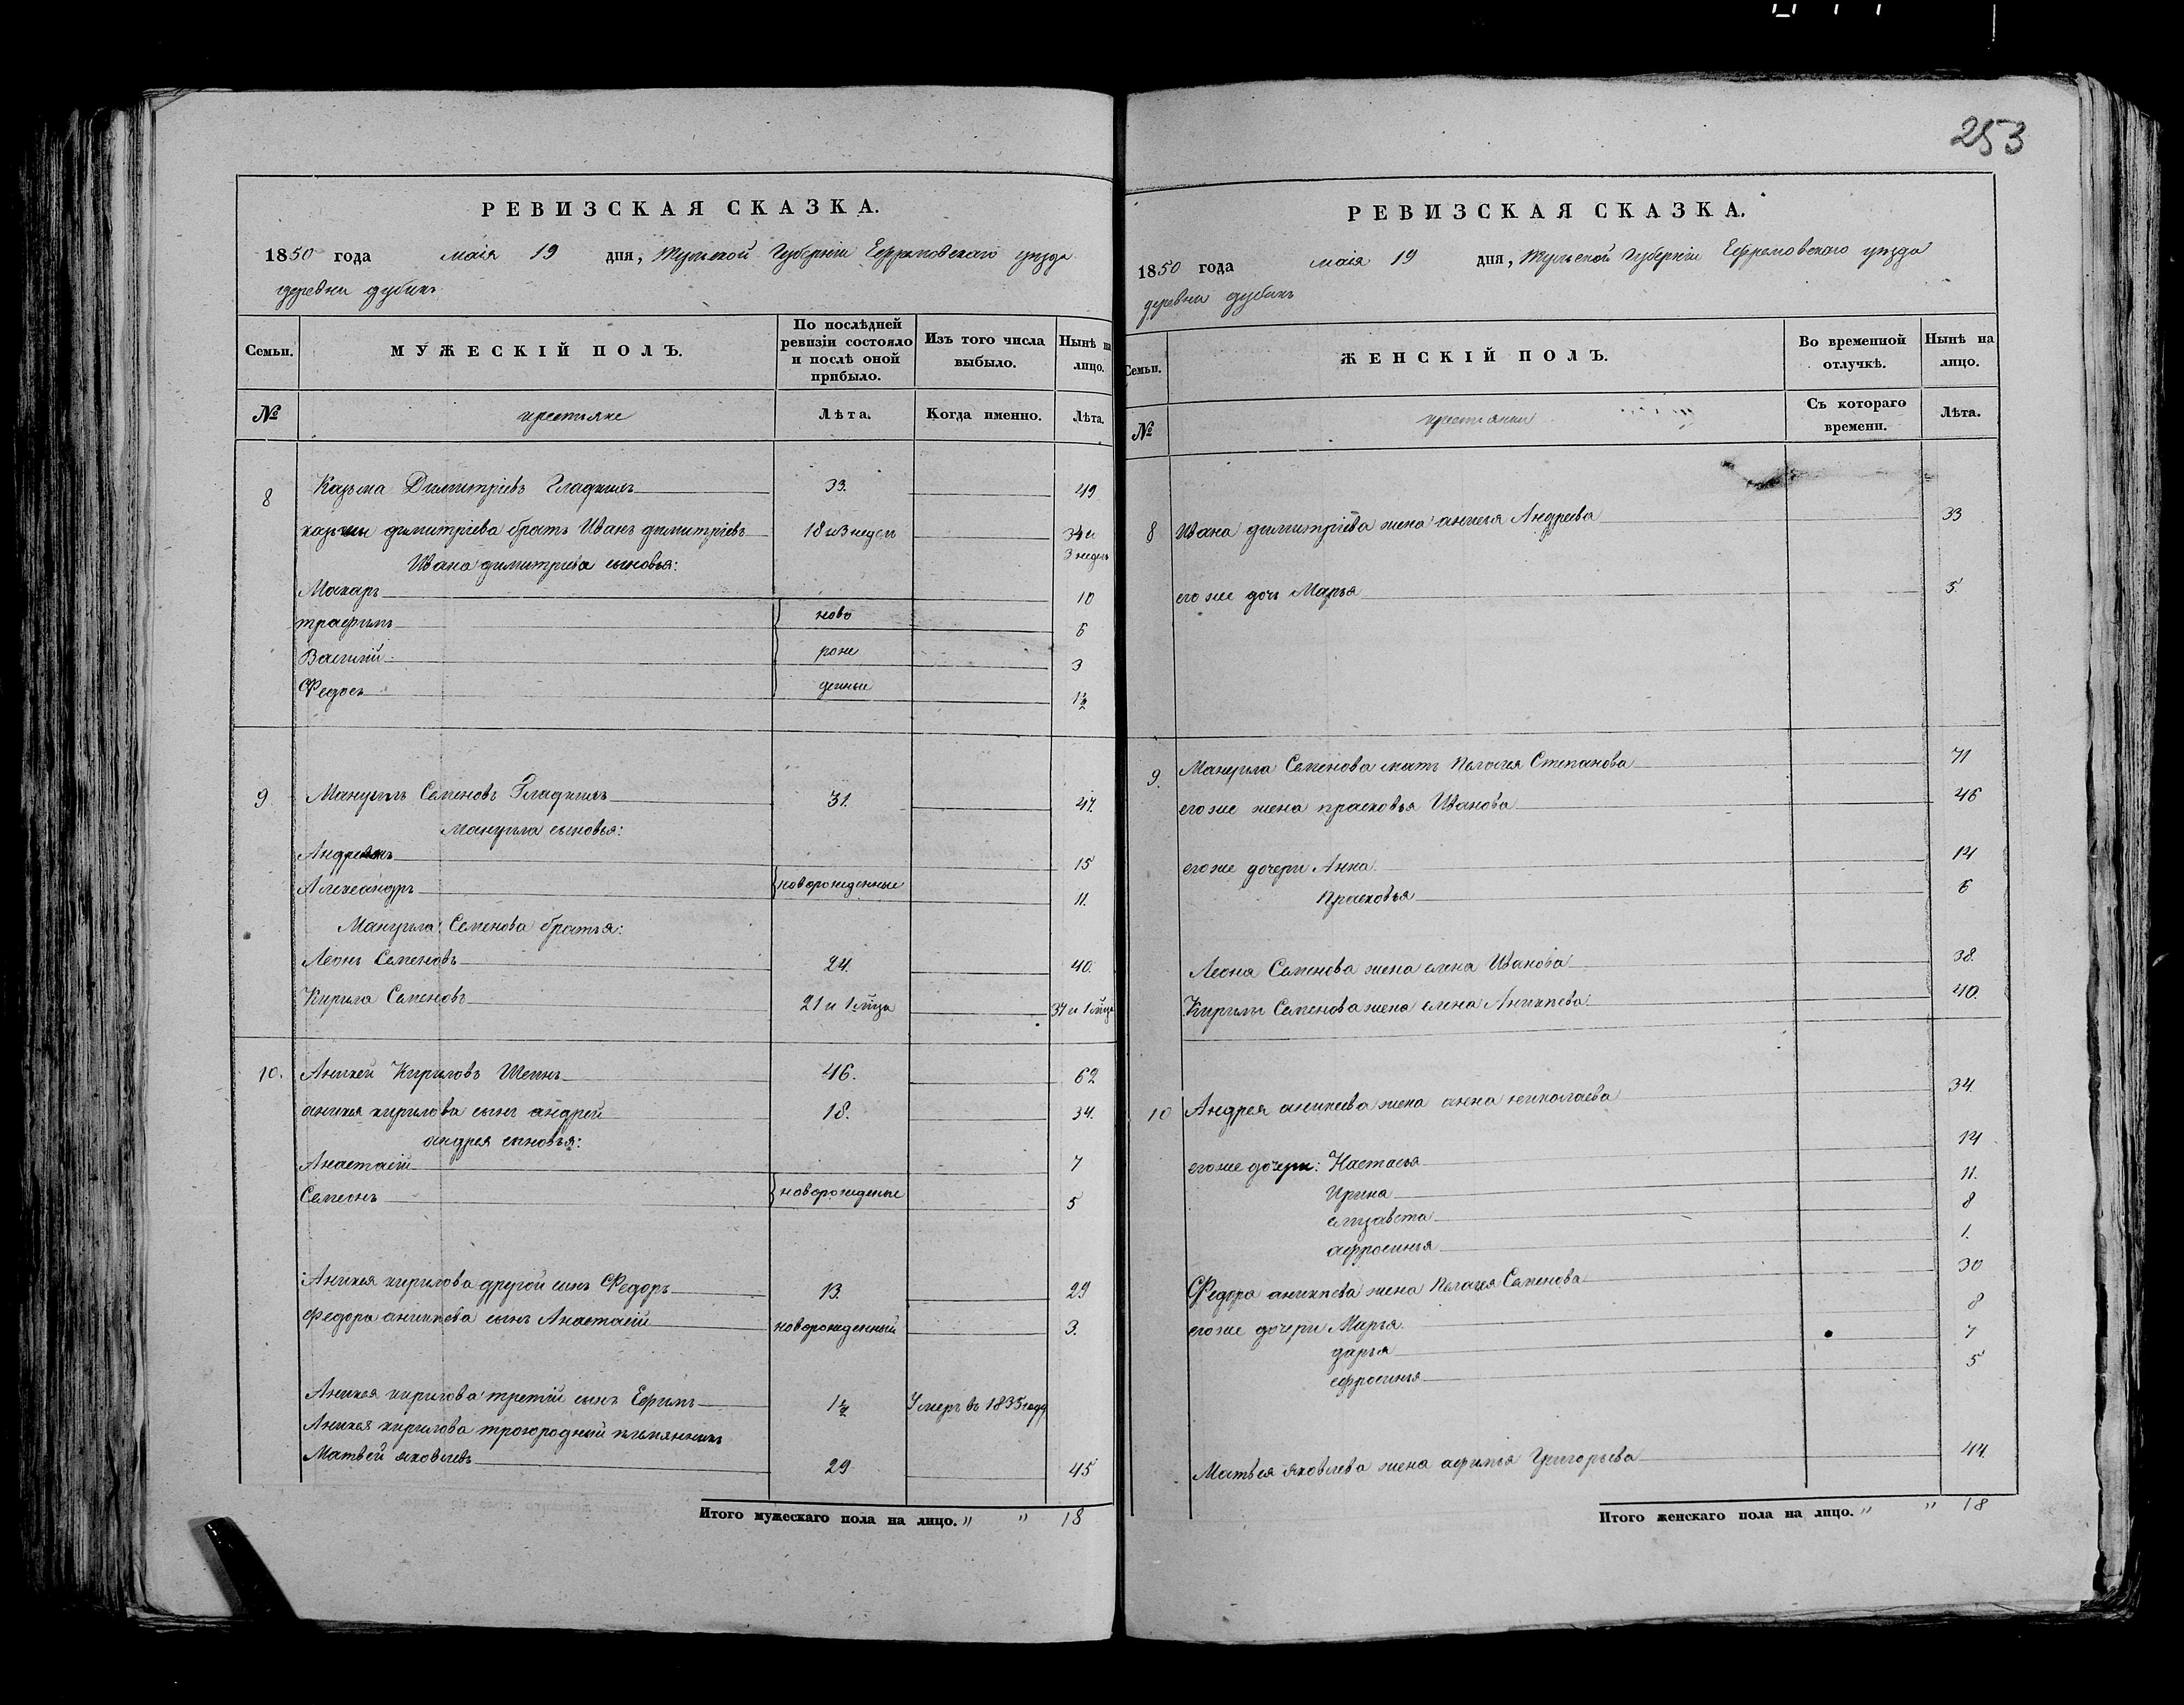 253
РЕВИЗСКАЯ СКАЗКА.
1850 года маія 19 дня, Тульской Губерніи Ефремовскаго уезда
деревни дубикъ
Семьи. МУЖЕСКІЙ ПОЛЪ. По послѣдней ревизіи состояло и послѣ оной прибыло. Изъ того числа выбыло. Нынѣ на лицо.
№ крестьяне Лѣта. Когда именно. Лѣта.
8 Казьма Димитріевъ Гладкихъ 33. 49
казьмы димитріева братъ Иванъ димитріевъ 18 и 3 недел 34 и 3 недел
Ивана димитріева сыновья:
Макаръ 10
трафимъ ново 6
Василій рож 3
Федосъ денные 1½
9 Мануилъ Семеновъ Гладкихъ 31. 47.
Мануила сыновья:
Андреянъ 15
Александръ новорожденные 11.
Мануила Семенова братья:
Леонъ Семеновъ 24. 40.
Кирила Семеновъ 21 и 1 мца 37 и 1 мца
10. Аникей Кириловъ Шеинъ 46. 62
аникея кирилова сынъ андрей 18. 34.
андрея сыновья:
Анастасій 7
Семеонъ новорожденые 5
Аникея кирилова другой сынъ Федоръ 13. 29
федора аникиева сынъ Анастасій новорожденный 3.
Аникея кирилова третій сынъ Ефимъ 1½ Умеръ въ 1835 году
Аникея кирилова троюродный племянникъ
Матвей яковлевъ 29 45
Итого мужескаго пола на лицо. " " 18
РЕВИЗСКАЯ СКАЗКА.
1850 года маія 19 дня, Тульской Губерніи Ефремовскаго уезда
деревни дубикъ
Семьи. ЖЕНСКІЙ ПОЛЪ. Во временной отлучкѣ. Нынѣ на лицо.
№ крестьянки Съ котораго времени. Лѣта.
8 Ивана димитріева жена анисья Андреева 33
его же дочь Марья 5
9. Мануила Семенова мать Пелагея Степанова 71
его же жена прасковья Иванова 46
его же дочери Анна 14
Прасковья 6
Леона Семенова жена елена Иванова 38.
Кирилы Семенова жена елена Аникиева 40.
10 Андрея аникеева жена анна николаева 34.
его же дочери: Настасья 14
Ирина 11.
елизавета 8
афросинья 1.
Федора аникиева жена Пелагея Семенова 30
его же дочери Марья 8
дарья 7
ефросинья 5
Матвея яковлева жена афимья Григорьева 44.
Итого женскаго пола на лицо. " " 18